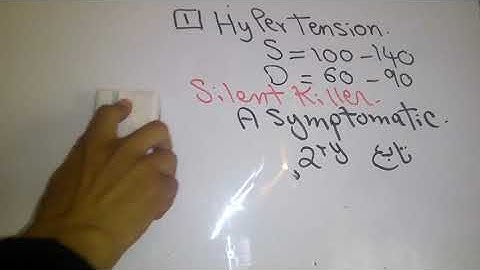 1 Hypertension.
S = 100 - 140
D = 60 - 90
Silent Killer.
A Symptomatic.
, 2ry تابع